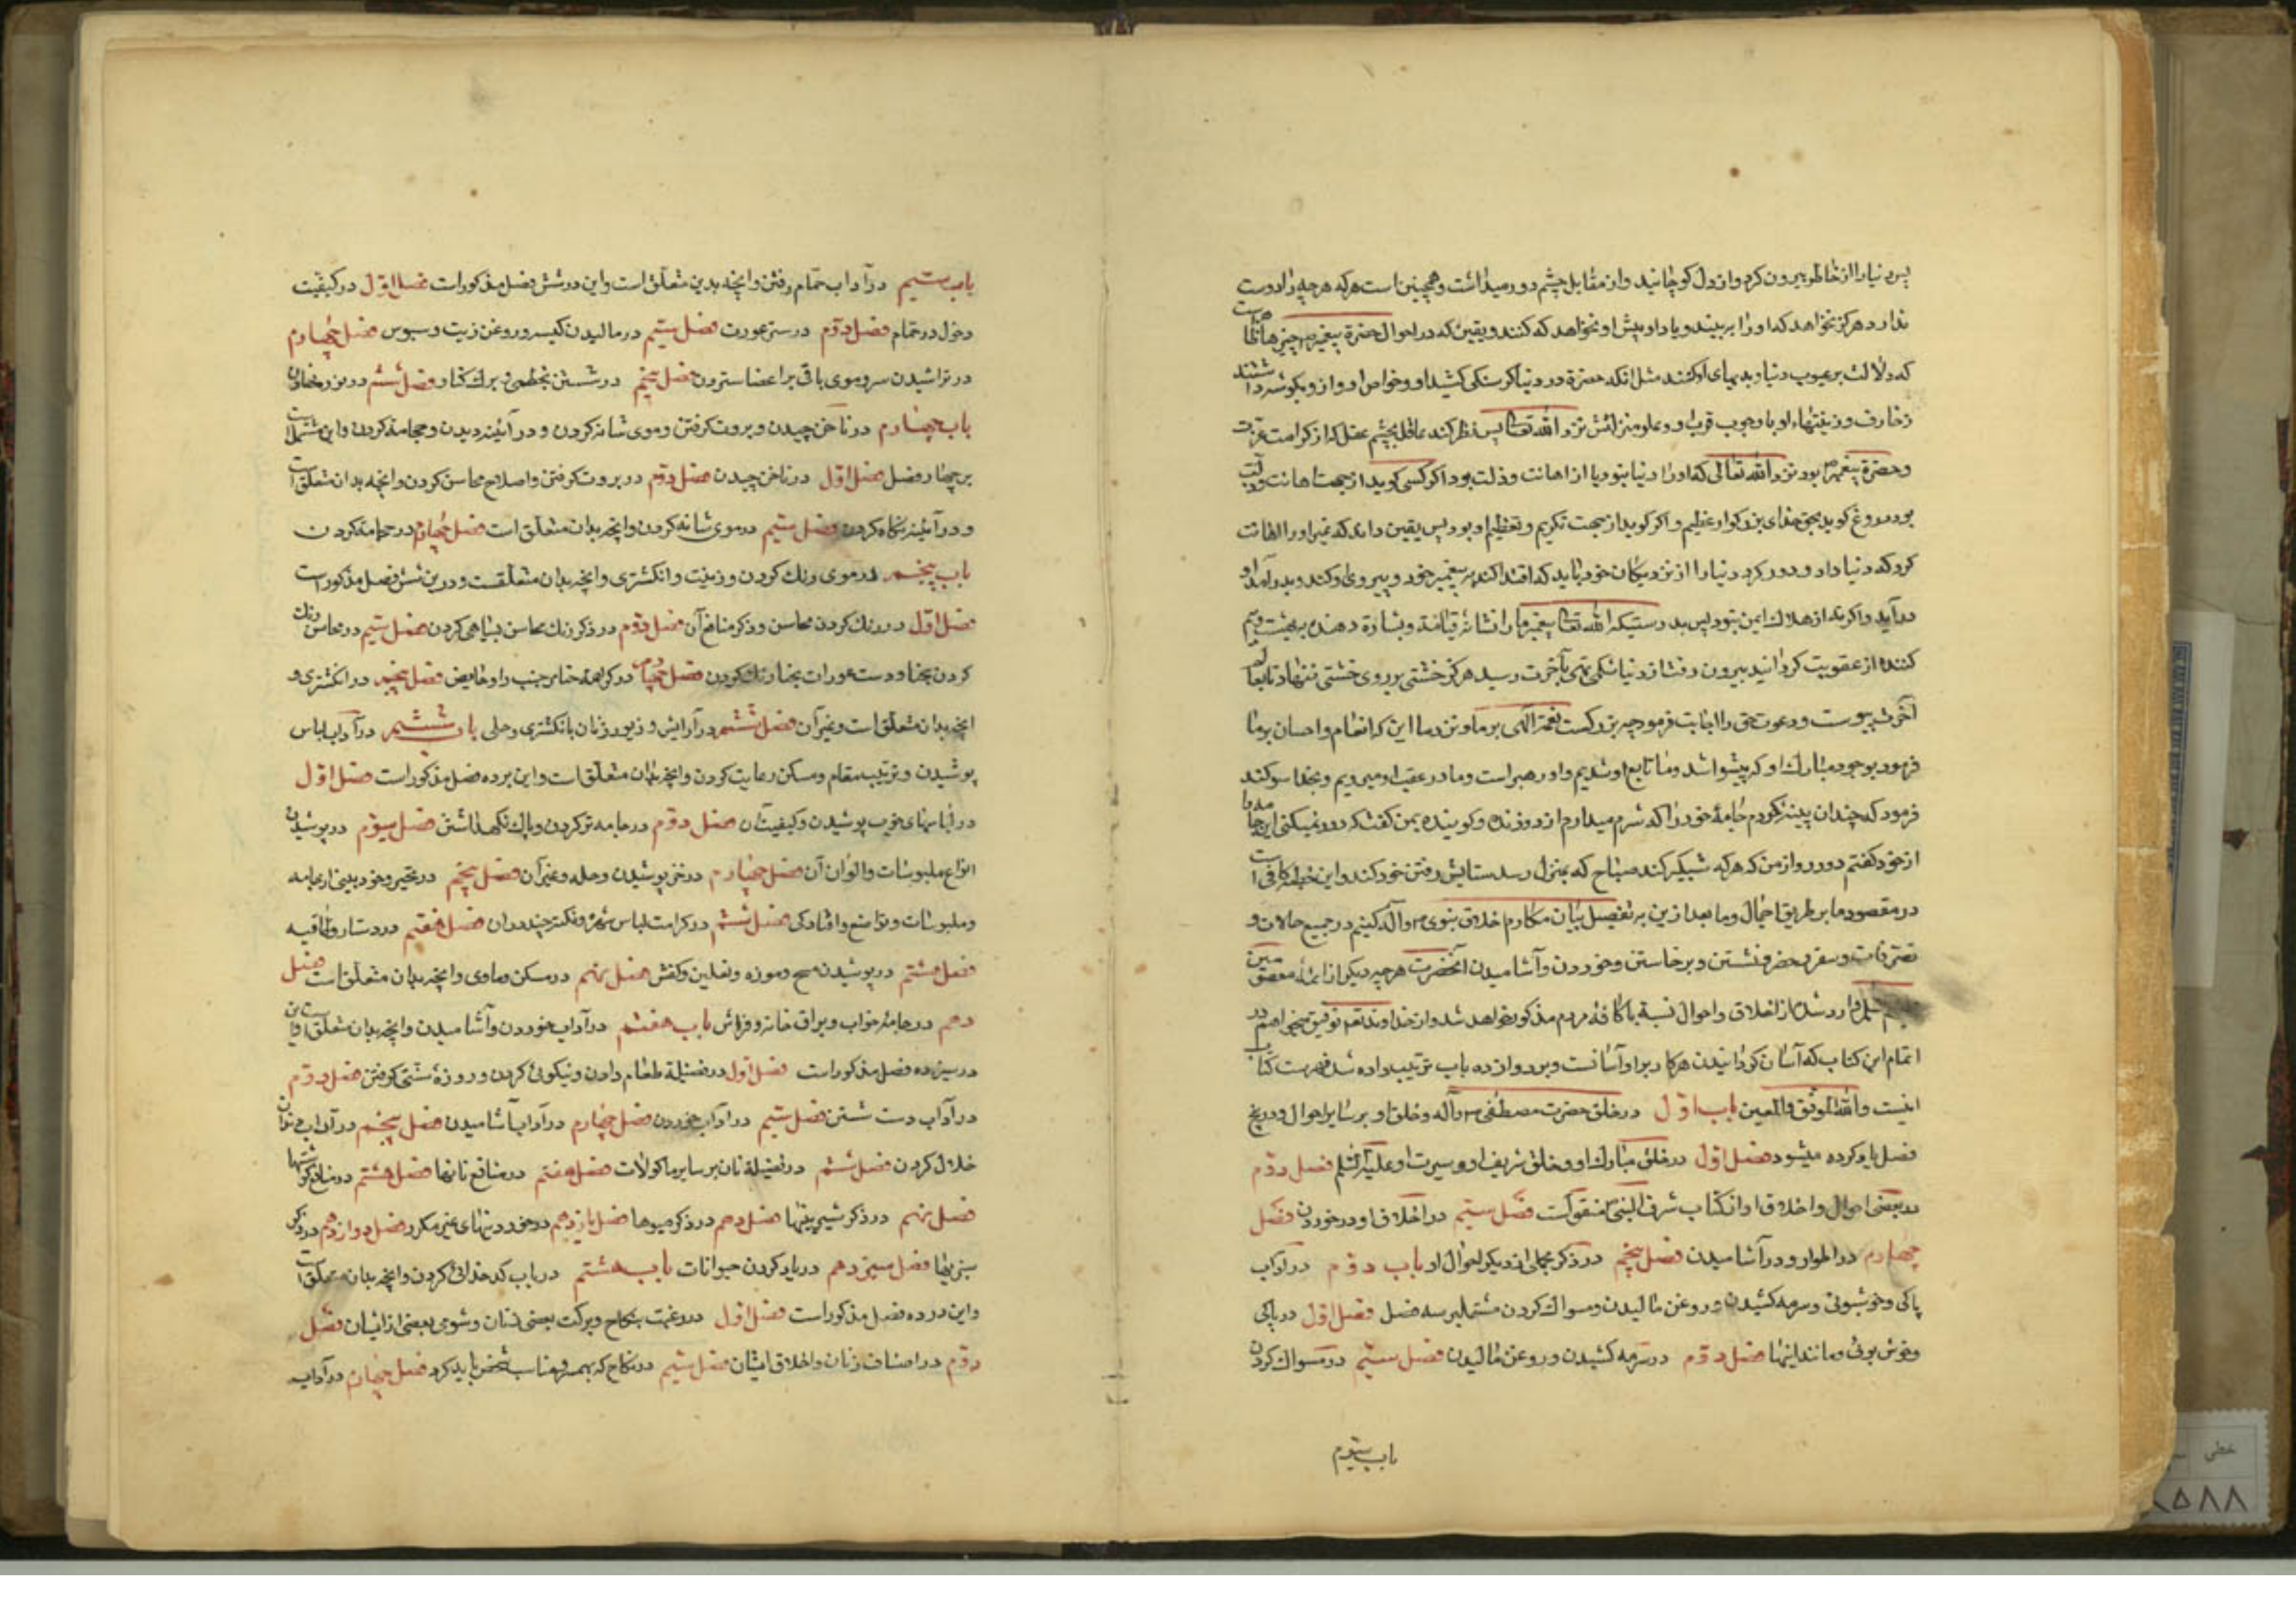 پس دنیا را از خاطر بیرون کرد و از دل کوچانید و از مقابل چشم دور میداشت و همچنین است هرکه هر چیز را دوست
ندارد هرکز نخواهد که او را به بیند و یا داو پیش او نخواهد که کنند و یقین که در احوال حضرة پیغمبر چیزهاست
که دلالت بر عیوب دنیا و بدیهای او کنند مثل انکه حضرة در دنیا کرسنکی کشید او و خواص او و ازو بکوشه داشتند
زخارف و زینتهاء او با وجوب قرب او و علو منزلتش نزد الله تعالی پس نظر کند عاقل بچشم عقل که از کرامت
و حضرة پیغمبر بود نزد الله تعالی که او را دنیا نبود یا از اهانت و ذلت بود اکر کسی کوید از جهت اهانت و
بود دروغ کوید بحق خدای بزرکوار عظیم و اکر کوید از جهت تکریم و تعظیم او بود پس یقین داند که غیر او را اهانت
کرد که دنیا داد و دور کرد دنیا را از نزدیکان خود باید که اقتدا کند به پیغمبر خود و پیروی او کند و بدر آمد او
در آید و اکر نه از هلاک ایمن نبود پس بدرستیکه الله تعالی پیغمبر ما را نشانه قیامة و بشارة دهنده به بهشت و بیم
کننده از عقوبت کردانید بیرون رفت از دنیا شکم تهی بآخرت رسید هرکز خشتی بر روی خشتی ننهاد تا بعالم
آخرت پیوست و دعوت حق را اجابت فرمود چه بزرکست نعمة الهی بر ما و نزد ما این که انعام و احسان بر ما
فرمود بوجود مبارک او که پیشوا شد و ما تابع او شدیم و او رهبر است و ما در عقب او میرویم و بخدا سوکند
فرمود که چندان پینه کردم جامهٔ خود را که شرم میدارم از دوزنده و کوینده بمن کفت که دور نمیکنی این جامه را
از خود کفتم دور رو از من که هرکه شبکیر کند صباح که بمنزل رسد ستایش رفتن خود کند و این خطبه کافی است
در مقصود ما بر طریق اجمال و ما بعد ازین به تفصیل بیان مکارم اخلاق نبوی ص و آله کنیم در جمیع حالات و
تصرفات و سفر و حضر و نشستن و برخاستن و خوردن و آشامیدن آنحضرت هر چیه دیکر از ائمهٔ معصومین
وارد شده از اخلاق و احوال نسبة با کافهٔ مردم مذکور خواهد شد و از خداوند تعم توفیق میخواهم در
اتمام این کتاب که آسان کردانیدن هر کار بر او آسانست و بر دوازده باب ترتیب داده شد فهرست کتاب
اینست والله الموفق والمعین باب اول در خلق حضرت مصطفی ص و آله و خلق او بر سایر احوال و در پنج
فصل یاد کرده میشود فصل اول در خلق مبارک او و خلق شریف او و سیرت او علیه السلم فصل دوم
در بعضی احوال و اخلاق او از کتاب شرف النبی منقولست فصل سیم در اخلاق او در خوردن فصل
چهارم در اطوار و در آشامیدن فصل پنجم در ذکر مجملی از دیکر احوال او باب دوم در آداب
پاکی و خوشبوئی و سرمه کشیدن و روغن مالیدن و مسواک کردن مشتمل بر سه فصل فصل اول در پاکی
و خوش بوئی و مانند اینها فصل دوم در سرمه کشیدن و روغن مالیدن فصل سیم در مسواک کردن
باب سیوم
باب سیم در آداب حمام رفتن و انچه بدین متعلق است و این در شش فصل مذکور است فصل اول در کیفیت
دخول در حمام فصل دوم در ستر عورت فصل سیم در مالیدن کیسه و روغن زیت و سبوس فصل چهارم
در تراشیدن سر و موی باقی بر اعضا ستردن فصل پنجم در شستن بخطمی و برک کنار فصل ششم در نوره نهادن
باب چهارم در ناخن چیدن و بروت کرفتن و موی شانه کردن و در آئینه دیدن و حجامة کردن و این مشتمل است
بر چهار فصل فصل اول در ناخن چیدن فصل دوم در بروت کرفتن و اصلاح محاسن کردن و انچه بدان متعلق است
و در آئینه نکاه کردن فصل سیم در موی شانه کردن و انچه بدان متعلق است فصل چهارم در حجامة کردن
باب پنجم در موی رنک کردن و زینت و انکشتری و انچه بدان متعلقست و درین شش فصل مذکور است
فصل اول در رنک کردن محاسن و ذکر منافع آن فصل دوم در ذکر رنک محاسن بسیاهی کردن فصل سیم در محاسن رنک
کردن بحنا و دست عورات بحنا رنک کردن فصل چهارم در کراهة حنا بر جنب را و حایض فصل پنجم در انکشتری و
انچه بدان متعلق است و غیر آن فصل ششم در آرایش و زیور زنان بانکشتری و حلی باب ششم در آداب لباس
پوشیدن و ترتیب مقام و مسکن رعایت کردن و انچه بدان متعلق است و این بر ده فصل مذکور است فصل اول
در لباسهای خوب پوشیدن و کیفیت آن فصل دوم در جامه نو کردن و پاک نکهداشتن فصل سیوم در پوشیدن
انواع ملبوسات و الوان آن فصل چهارم در خز پوشیدن و حله و غیر آن فصل پنجم در تجبر و خود بینی از جامه
و ملبوسات و تواضع و افتادکی فصل ششم در کرامت لباس شهره و نکته چند در ان فصل هفتم در دستار و طاقیه
فصل هشتم در پوشیدن مسح و موزه و نعلین و کفش فصل نهم در مسکن و ماوی و انچه بدان متعلق است فصل
دهم در جامهٔ خواب و یراق خانه و فراش باب هفتم در آداب خوردن و آشامیدن و انچه بدان متعلق است و این
در سیزده فصل مذکور است فصل اول در فضیلة طعام دادن و نیکوئی کردن و روزهٔ سنتی کرفتن فصل دوم
در آداب دست شستن فصل سیم در آداب خوردن فصل چهارم در آداب آشامیدن فصل پنجم در آداب
خلال کردن فصل ششم در فضیلة نان بر سایر ماکولات فصل هفتم در منافع نانها فصل هشتم در منافع کوشتها
فصل نهم در ذکر شیرینیها فصل دهم در ذکر میوها فصل یازدهم در خوردنیهای غیر مکرر فصل دوازدهم در ذکر
سبزیها فصل سیزدهم در یاد کردن حیوانات باب هشتم در باب کدخدائی کردن و انچه بدان متعلق است
و این در ده فصل مذکور است فصل اول در رغبت بنکاح و برکت بعضی زنان و شومی بعضی از ایشان فصل
دوم در اصناف زنان و اخلاق ایشان فصل سیم در نکاح که بهمسر و مناسب شخص باید کرد فصل چهارم در آداب
خطی
۸۵۸۸